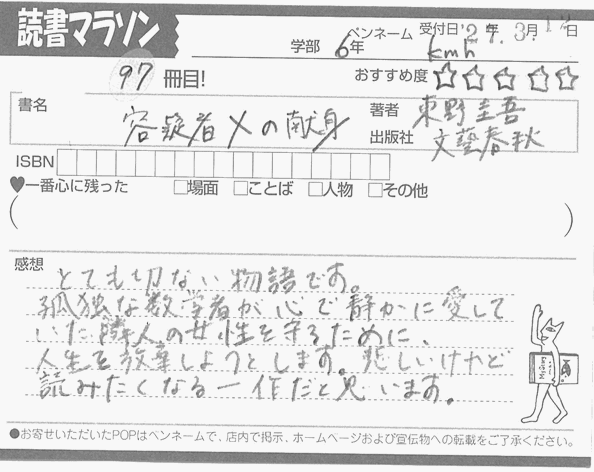 読書マラソン
学部 6年 ペンネーム kmh 受付日 '27.3月12日
97冊目! おすすめ度 ☆☆☆☆☆
書名 容疑者Xの献身 著者 東野圭吾
出版社 文藝春秋
ISBN
♥一番心に残った □場面 □ことば □人物 □その他
( )
感想
とても切ない物語です。
孤独な数学者が心で静かに愛して
いた隣人の女性を守るために、
人生を放棄しようとします。悲しいけれど
読みたくなる一作だと思います。
●お寄せいただいたPOPはペンネームで、店内で掲示、ホームページおよび宣伝物への転載をご了承ください。